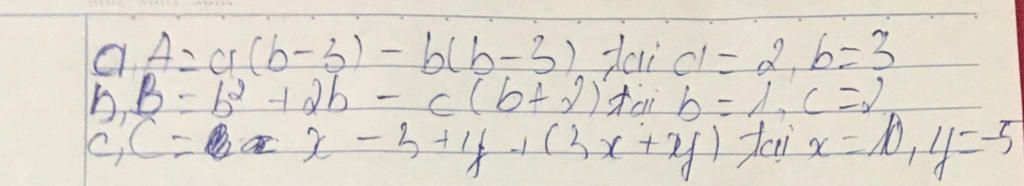 a, A = a(b-3) - b(b-3) tại a = 2, b = 3
b, B = b² + 2b - c(b+2) tại b = 1, c = 2
c, C = x - 3 + y + (3x + xy) tại x = 10, y = -5